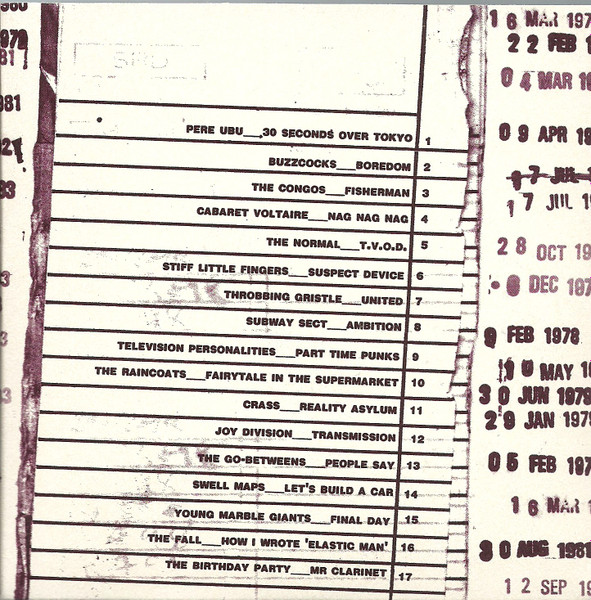 PERE UBU___30 SECONDS OVER TOKYO 1
BUZZCOCKS___BOREDOM 2
THE CONGOS___FISHERMAN 3
CABARET VOLTAIRE___NAG NAG NAG 4
THE NORMAL___T.V.O.D. 5
STIFF LITTLE FINGERS___SUSPECT DEVICE 6
THROBBING GRISTLE___UNITED 7
SUBWAY SECT___AMBITION 8
TELEVISION PERSONALITIES___PART TIME PUNKS 9
THE RAINCOATS___FAIRYTALE IN THE SUPERMARKET 10
CRASS___REALITY ASYLUM 11
JOY DIVISION___TRANSMISSION 12
THE GO-BETWEENS___PEOPLE SAY 13
SWELL MAPS___LET'S BUILD A CAR 14
YOUNG MARBLE GIANTS___FINAL DAY 15
THE FALL___HOW I WROTE 'ELASTIC MAN' 16
THE BIRTHDAY PARTY___MR CLARINET 17
1 6 MAR 197
2 2 FEB 1
0 4 MAR 1
0 9 APR 19
7 JUL
1 7 JUL 19
2 8 OCT 19
DEC 197
9 FEB 1978
MAY 1
3 0 JUN 1979
2 9 JAN 1979
0 5 FEB 197
1 6 MAR 1
3 0 AUG 1981
1 2 SEP 19